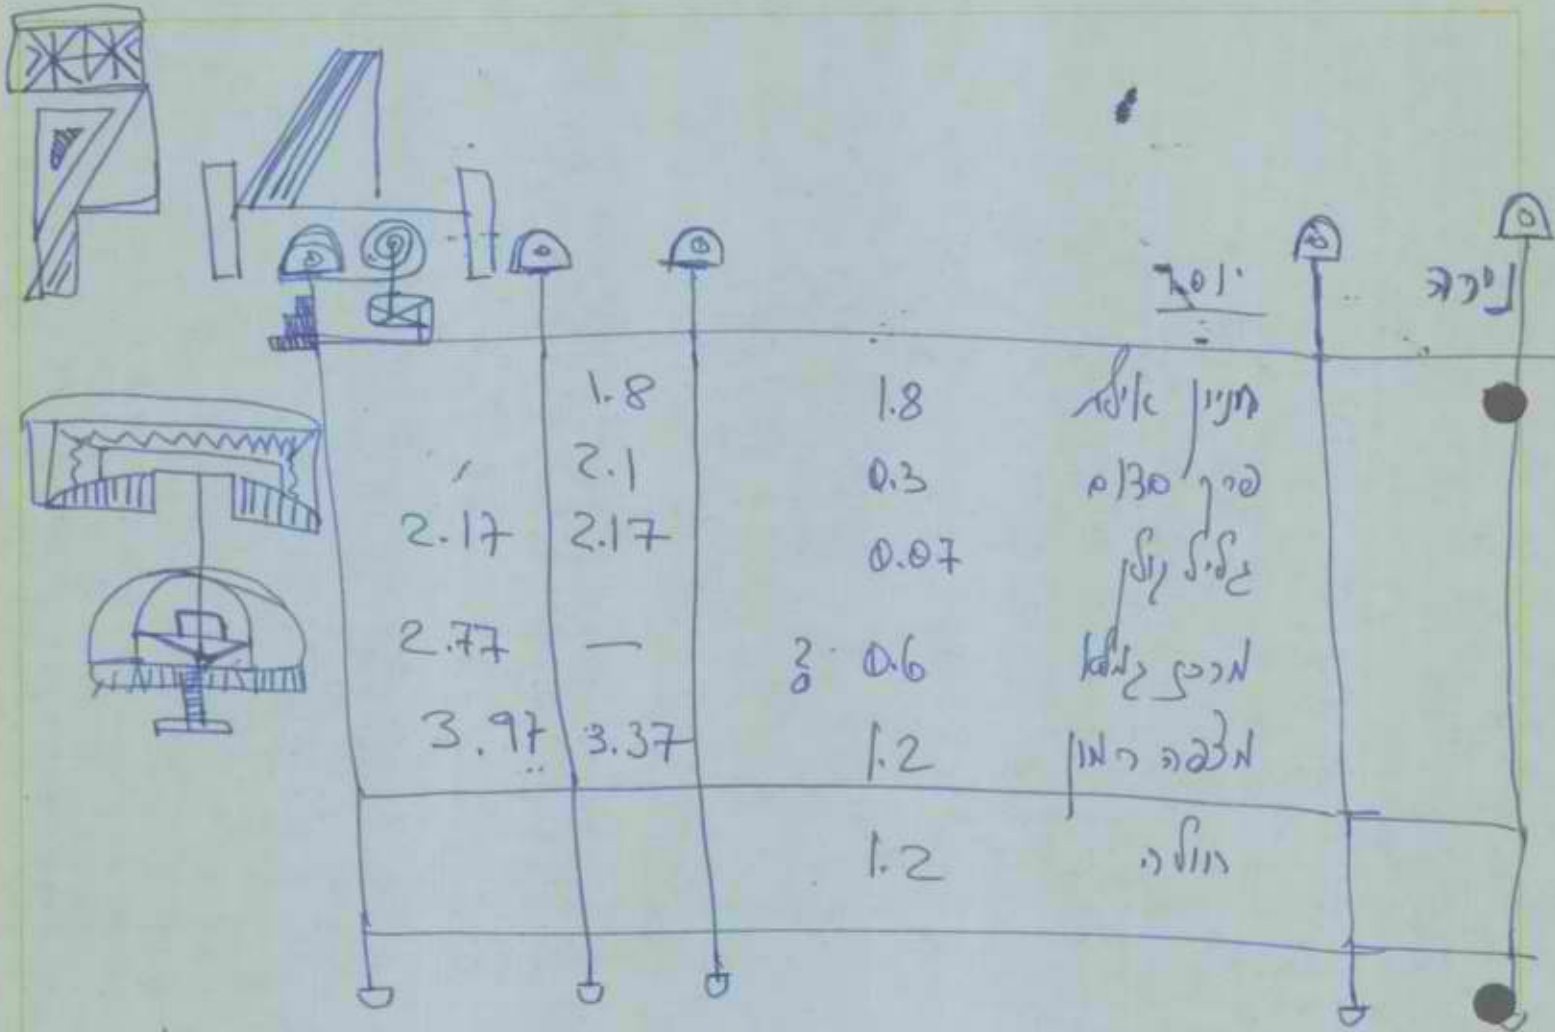 יוסף
חניון אילת 1.8 1.8
פרך סדום 0.3 2.1
גליל עליון 0.07 2.17 2.17
מרכז גמלא 0.6 ? — 2.77
מצפה רמון 1.2 3.37 3.97
1.2